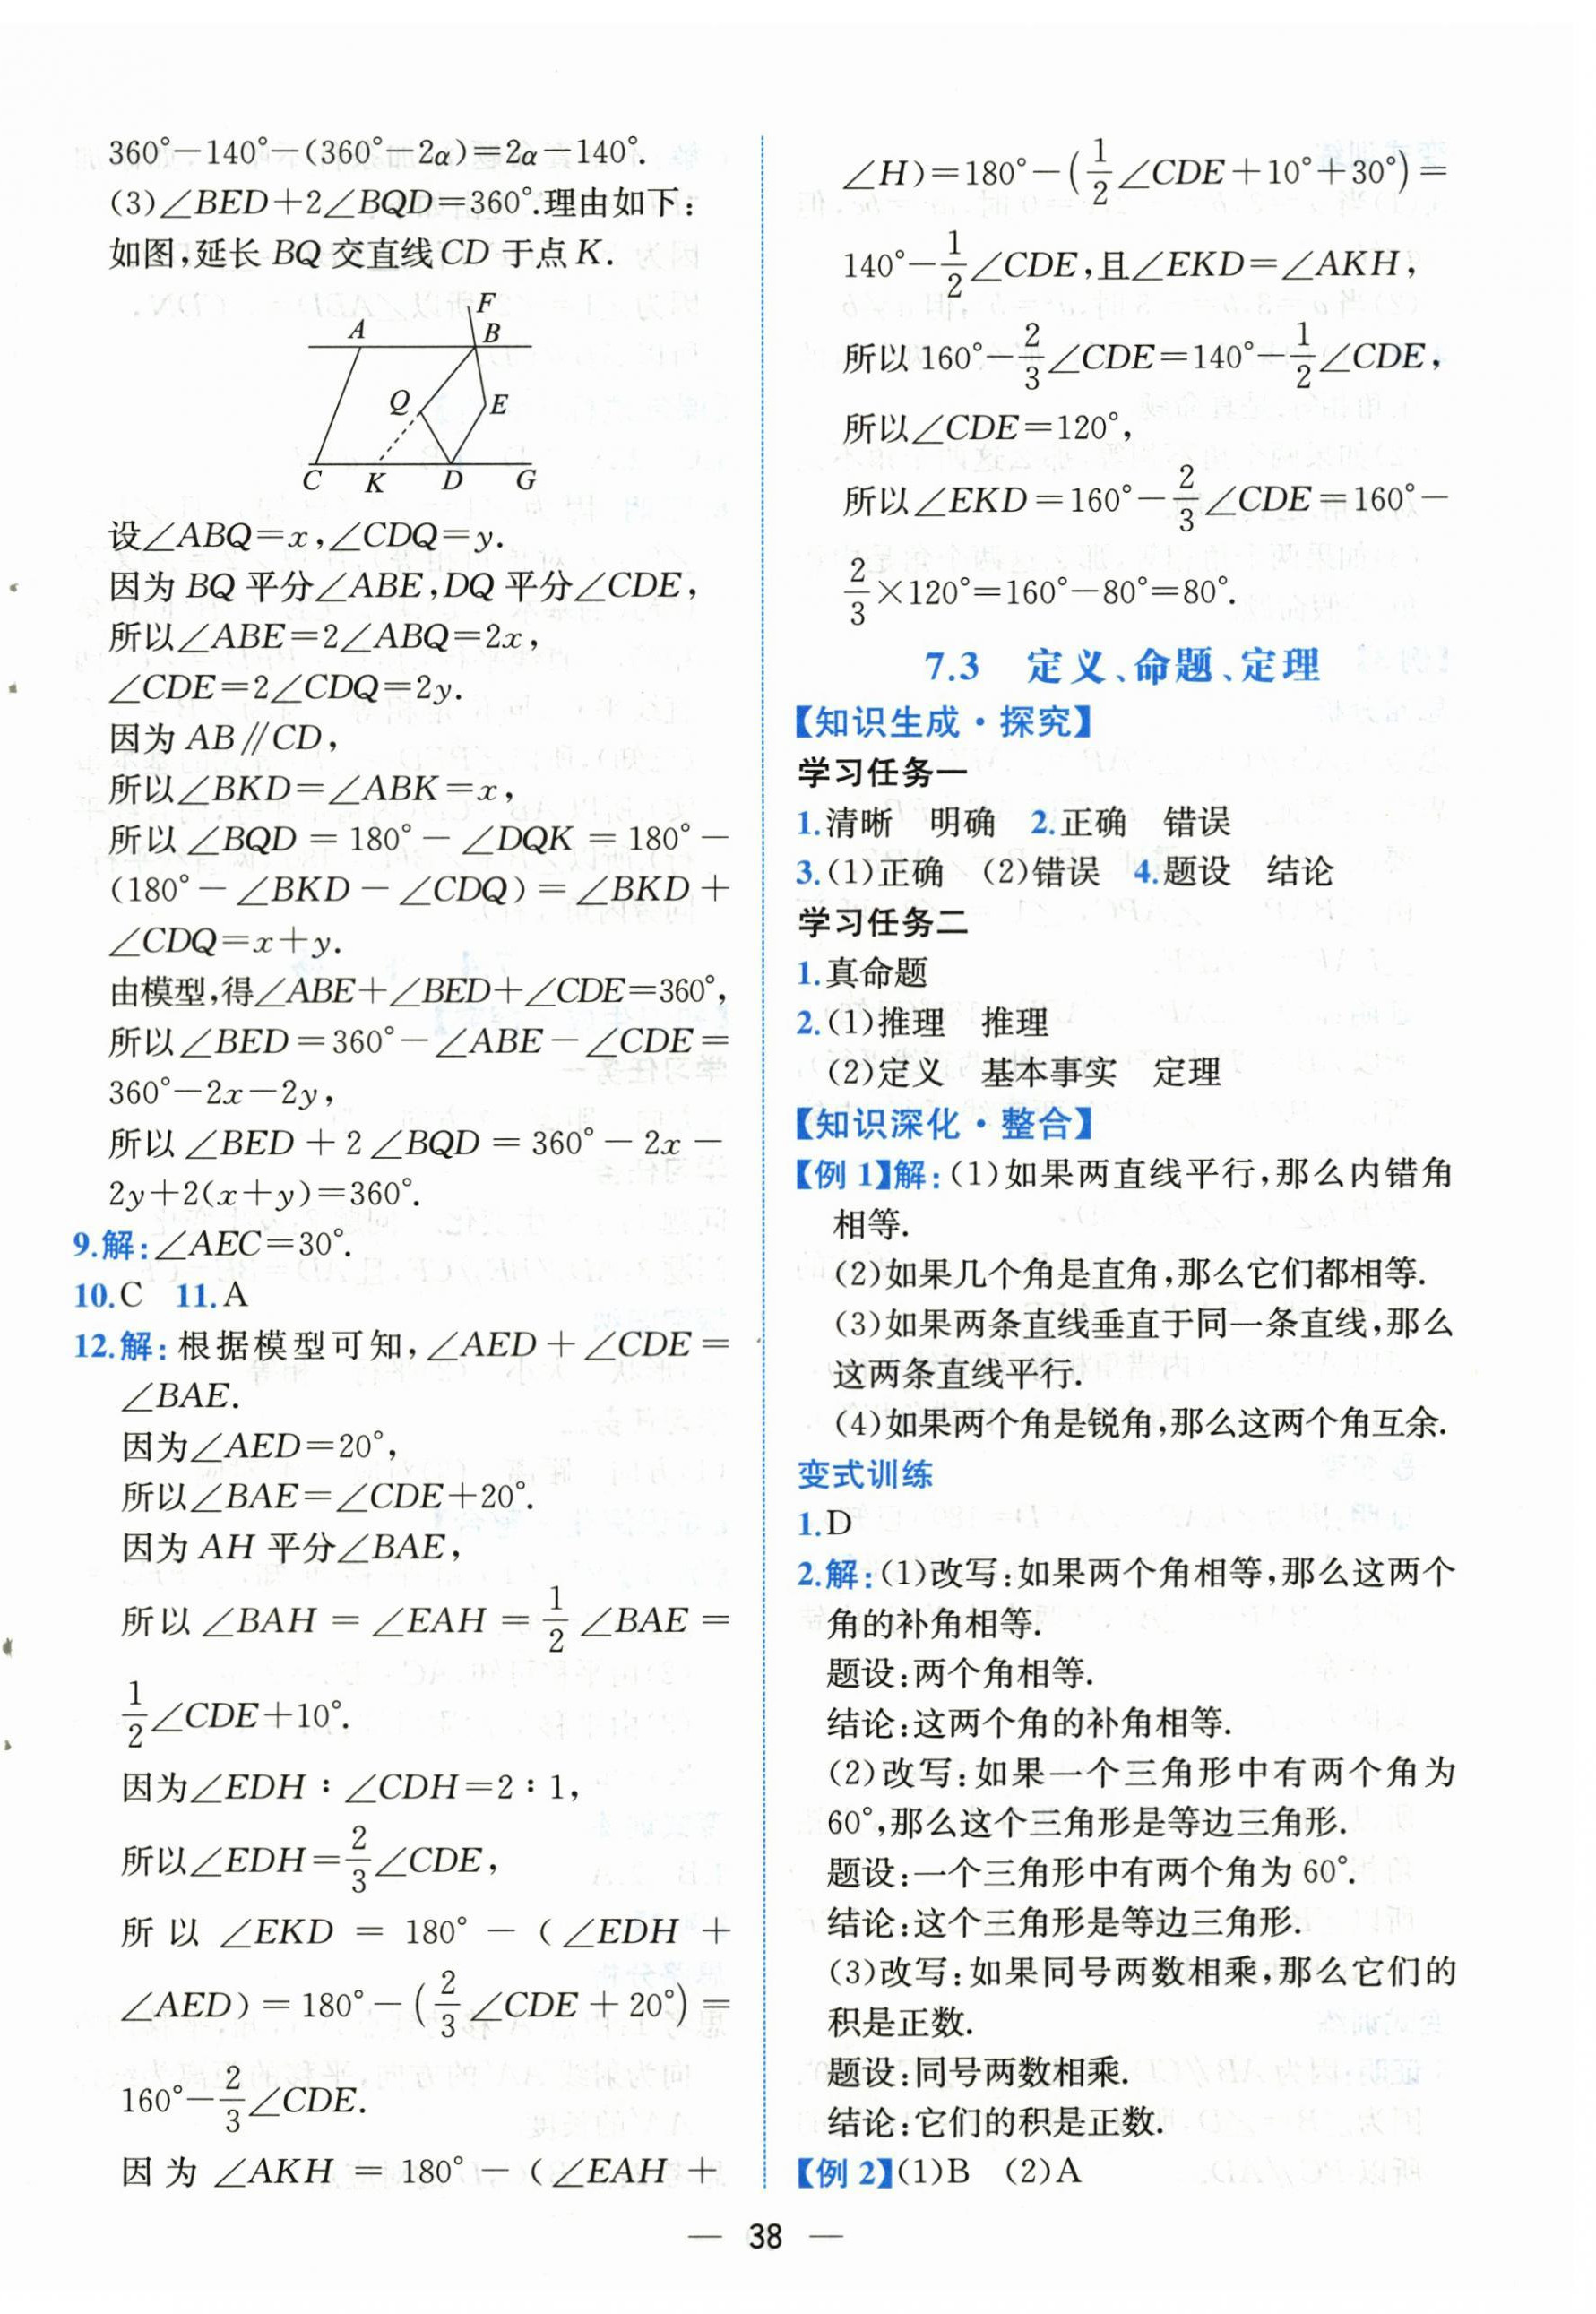 360°－140°－(360°－2α)＝2α－140°.
(3)∠BED＋2∠BQD＝360°.理由如下：
如图，延长 BQ 交直线 CD 于点 K.
F
A
B
Q
E
C
K
D
G
设∠ABQ＝x，∠CDQ＝y.
因为 BQ 平分∠ABE，DQ 平分∠CDE，
所以∠ABE＝2∠ABQ＝2x，
∠CDE＝2∠CDQ＝2y.
因为 AB∥CD，
所以∠BKD＝∠ABK＝x，
所以∠BQD＝180°－∠DQK＝180°－
(180°－∠BKD－∠CDQ)＝∠BKD＋
∠CDQ＝x＋y.
由模型，得∠ABE＋∠BED＋∠CDE＝360°，
所以∠BED＝360°－∠ABE－∠CDE＝
360°－2x－2y，
所以∠BED＋2∠BQD＝360°－2x－
2y＋2(x＋y)＝360°.
9.解：∠AEC＝30°.
10.C 11.A
12.解：根据模型可知，∠AED＋∠CDE＝
∠BAE.
因为∠AED＝20°，
所以∠BAE＝∠CDE＋20°.
因为 AH 平分∠BAE，
所以∠BAH＝∠EAH＝1/2∠BAE＝
1/2∠CDE＋10°.
因为∠EDH：∠CDH＝2：1，
所以∠EDH＝2/3∠CDE，
所以∠EKD＝180°－(∠EDH＋
∠AED)＝180°－(2/3∠CDE＋20°)＝
160°－2/3∠CDE.
因为∠AKH＝180°－(∠EAH＋
∠H)＝180°－(1/2∠CDE＋10°＋30°)＝
140°－1/2∠CDE，且∠EKD＝∠AKH，
所以 160°－2/3∠CDE＝140°－1/2∠CDE，
所以∠CDE＝120°，
所以∠EKD＝160°－2/3∠CDE＝160°－
2/3×120°＝160°－80°＝80°.
7.3 定义、命题、定理
【知识生成·探究】
学习任务一
1.清晰 明确 2.正确 错误
3.(1)正确 (2)错误 4.题设 结论
学习任务二
1.真命题
2.(1)推理 推理
(2)定义 基本事实 定理
【知识深化·整合】
【例 1】解：(1)如果两直线平行，那么内错角
相等.
(2)如果几个角是直角，那么它们都相等.
(3)如果两条直线垂直于同一条直线，那么
这两条直线平行.
(4)如果两个角是锐角，那么这两个角互余.
变式训练
1.D
2.解：(1)改写：如果两个角相等，那么这两个
角的补角相等.
题设：两个角相等.
结论：这两个角的补角相等.
(2)改写：如果一个三角形中有两个角为
60°，那么这个三角形是等边三角形.
题设：一个三角形中有两个角为 60°.
结论：这个三角形是等边三角形.
(3)改写：如果同号两数相乘，那么它们的
积是正数.
题设：同号两数相乘.
结论：它们的积是正数.
【例 2】(1)B (2)A
— 38 —